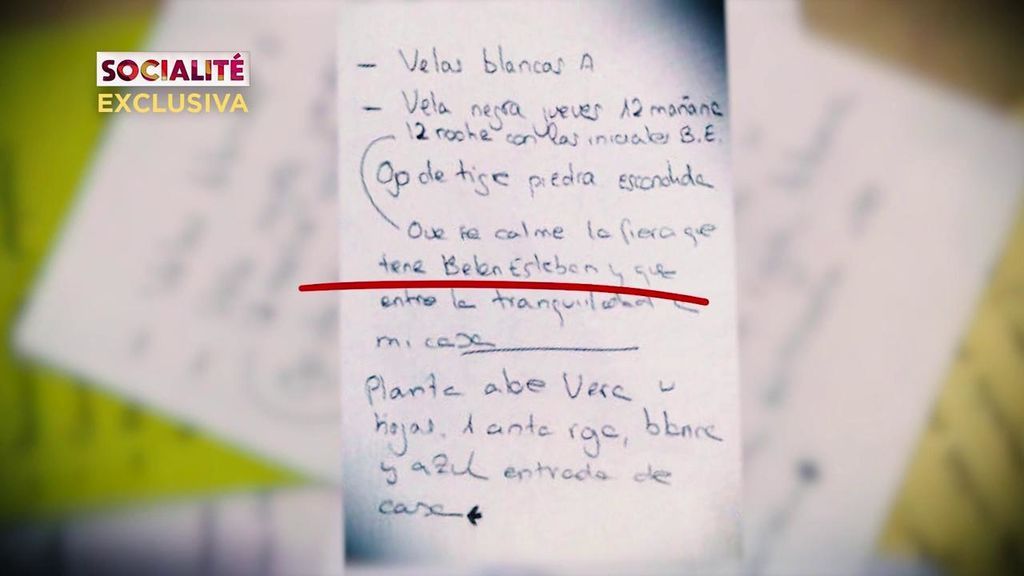 SOCIALITÉ
EXCLUSIVA
- Velas blancas A
- Vela negra jueves 12 mañana
12 noche con las iniciales B.E.
Ojo de tigre piedra escondida
Que se calme la fiera que
tene Belen Esteban y que
entre la tranquilidad a
mi casa
Planta aloe Vera
hojas. 1 anta roja, blanca
y azul entrada de
casa